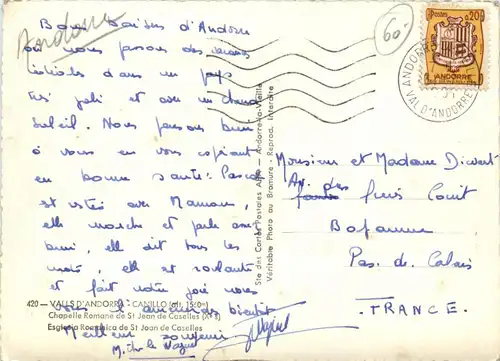 Andorre
60
Bons Baisers d'Andorre
où nous passons des vacances
idéales dans un pays
très joli et avec un chaud
soleil. Nous pensons bien
à vous en vous espérant
en bonne santé. Pascale
est restée avec Maman,
elle marche et parle aussi
bien, elle dit tous les
mots, elle est
et fait notre joie nous
vous l'amènerons bientôt
Meilleur souvenir
Postes 0,20
ANDORRE
ANDORRE
VAL D'ANDORRE
Sté des Cartes Postales — Andorre-la-Vieille
Véritable Photo au Bromure - Reprod. Interdite
Monsieur et Madame
Av. des
Bapaume
Pas. de Calais
FRANCE.
420 - VALLS D'ANDORRA - CANILLO (alt. 1560m)
Chapelle Romane de St Jean de Caselles (XIe s)
Església Romànica de St Joan de Caselles